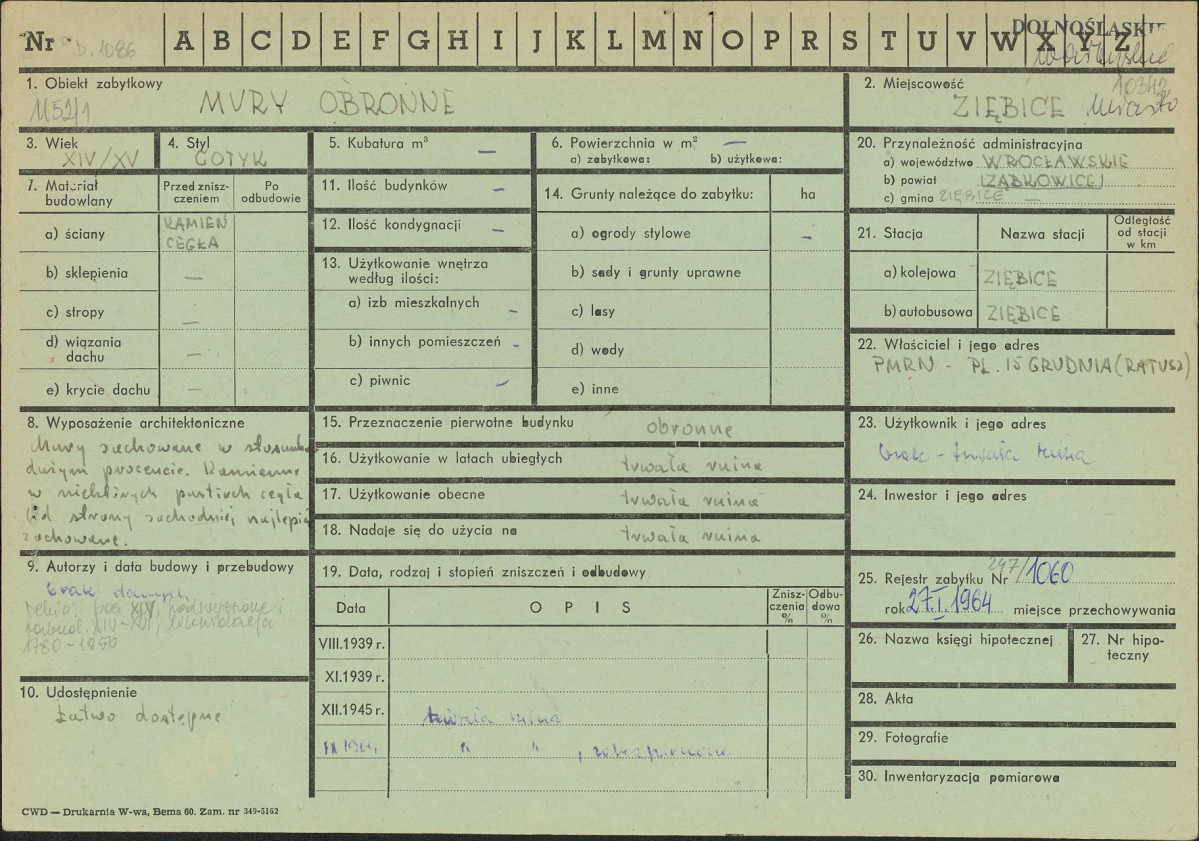 Nr D. 1086 A B C D E F G H I J K L M N O P R S T U V W X Y Z DOLNOŚLĄSKIE
10342
1. Obiekt zabytkowy
1152/1 MURY OBRONNE
2. Miejscowość
ZIĘBICE Miasto
3. Wiek
XIV/XV
4. Styl
GOTYK
5. Kubatura m³ —
6. Powierzchnia w m² —
a) zabytkowa: b) użytkowa:
20. Przynależność administracyjna
a) województwo WROCŁAWSKIE
b) powiat ZĄBKOWICE
c) gmina ZIĘBICE —
7. Materiał budowlany
Przed zniszczeniem
Po odbudowie
a) ściany KAMIEŃ
CEGŁA
b) sklepienia —
c) stropy —
d) wiązania dachu —
e) krycie dachu —
11. Ilość budynków —
12. Ilość kondygnacji —
13. Użytkowanie wnętrza
według ilości:
a) izb mieszkalnych -
b) innych pomieszczeń -
c) piwnic -
14. Grunty należące do zabytku: ha
a) ogrody stylowe -
b) sady i grunty uprawne
c) lasy
d) wody
e) inne
21. Stacja Nazwa stacji Odległość od stacji w km
a) kolejowa ZIĘBICE
b) autobusowa ZIĘBICE
22. Właściciel i jego adres
PMRN - PL. 15 GRUDNIA (RATUSZ)
8. Wyposażenie architektoniczne
Mury zachowane w stosunk.
dużym procencie. Kamienne
w niektórych partiach cegła
Od strony zachodniej najlepiej
zachowane.
15. Przeznaczenie pierwotne budynku obronne
16. Użytkowanie w latach ubiegłych trwała ruina
17. Użytkowanie obecne trwała ruina
18. Nadaje się do użycia na trwała ruina
23. Użytkownik i jego adres
brak - trwała ruina
24. Inwestor i jego adres
9. Autorzy i data budowy i przebudowy
brak danych
XIV, podwyższone i
XIV-XVI, likwidacja
1780-1880
10. Udostępnienie
Łatwo dostępne
19. Data, rodzaj i stopień zniszczeń i odbudowy
Data OPIS Zniszczenia % Odbudowa %
VIII.1939 r.
XI.1939 r.
XII.1945 r. trwała ruina
" " , zabezpieczona
25. Rejestr zabytku Nr 247/1060
rok 27.I.1964 miejsce przechowywania
26. Nazwa księgi hipotecznej
27. Nr hipoteczny
28. Akta
29. Fotografie
30. Inwentaryzacja pomiarowa
CWD — Drukarnia W-wa, Bema 60. Zam. nr 349-5162